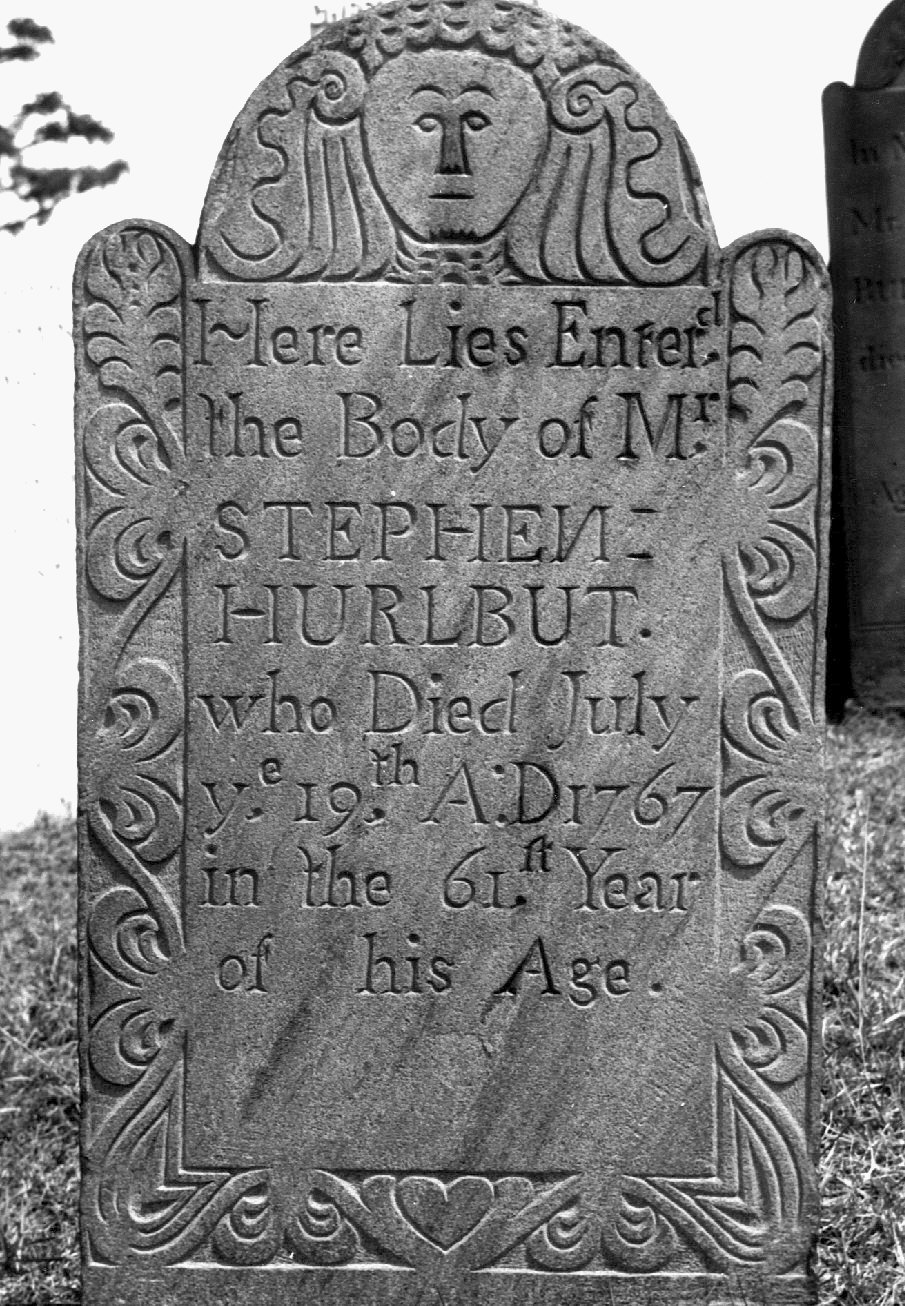 Here Lies Enter.d
the Body of M.r
STEPHEN=
HURLBUT.
who Died July
y.e 19.th A:D1767
in the 61.st Year
of his Age.
In
Mr.